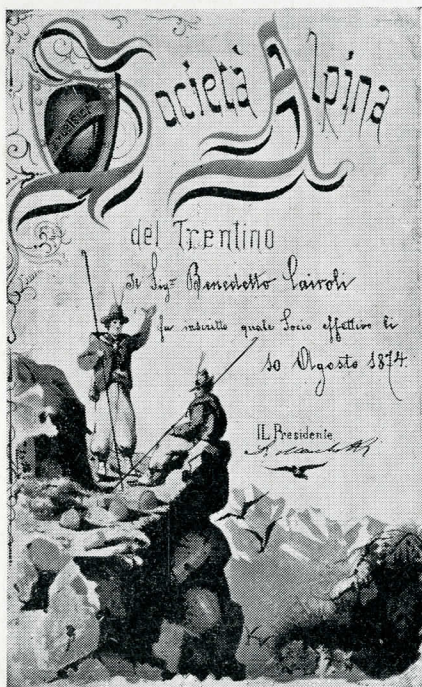 Società Alpina
Excelsior
del Trentino
Il Sigr. Benedetto Cairoli
fu inscritto quale Socio effettivo li
10 Agosto 1874.
IL Presidente